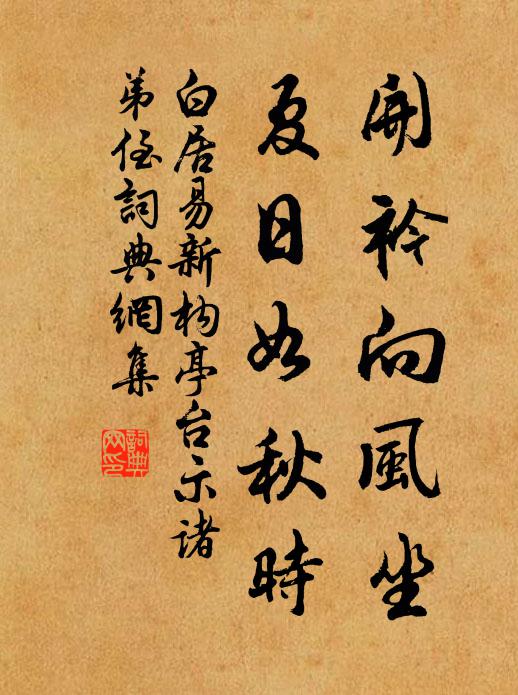 開衿向風坐
夏日如秋時
白居易新构亭台示諸
弟侄詞典網集
詞典網印